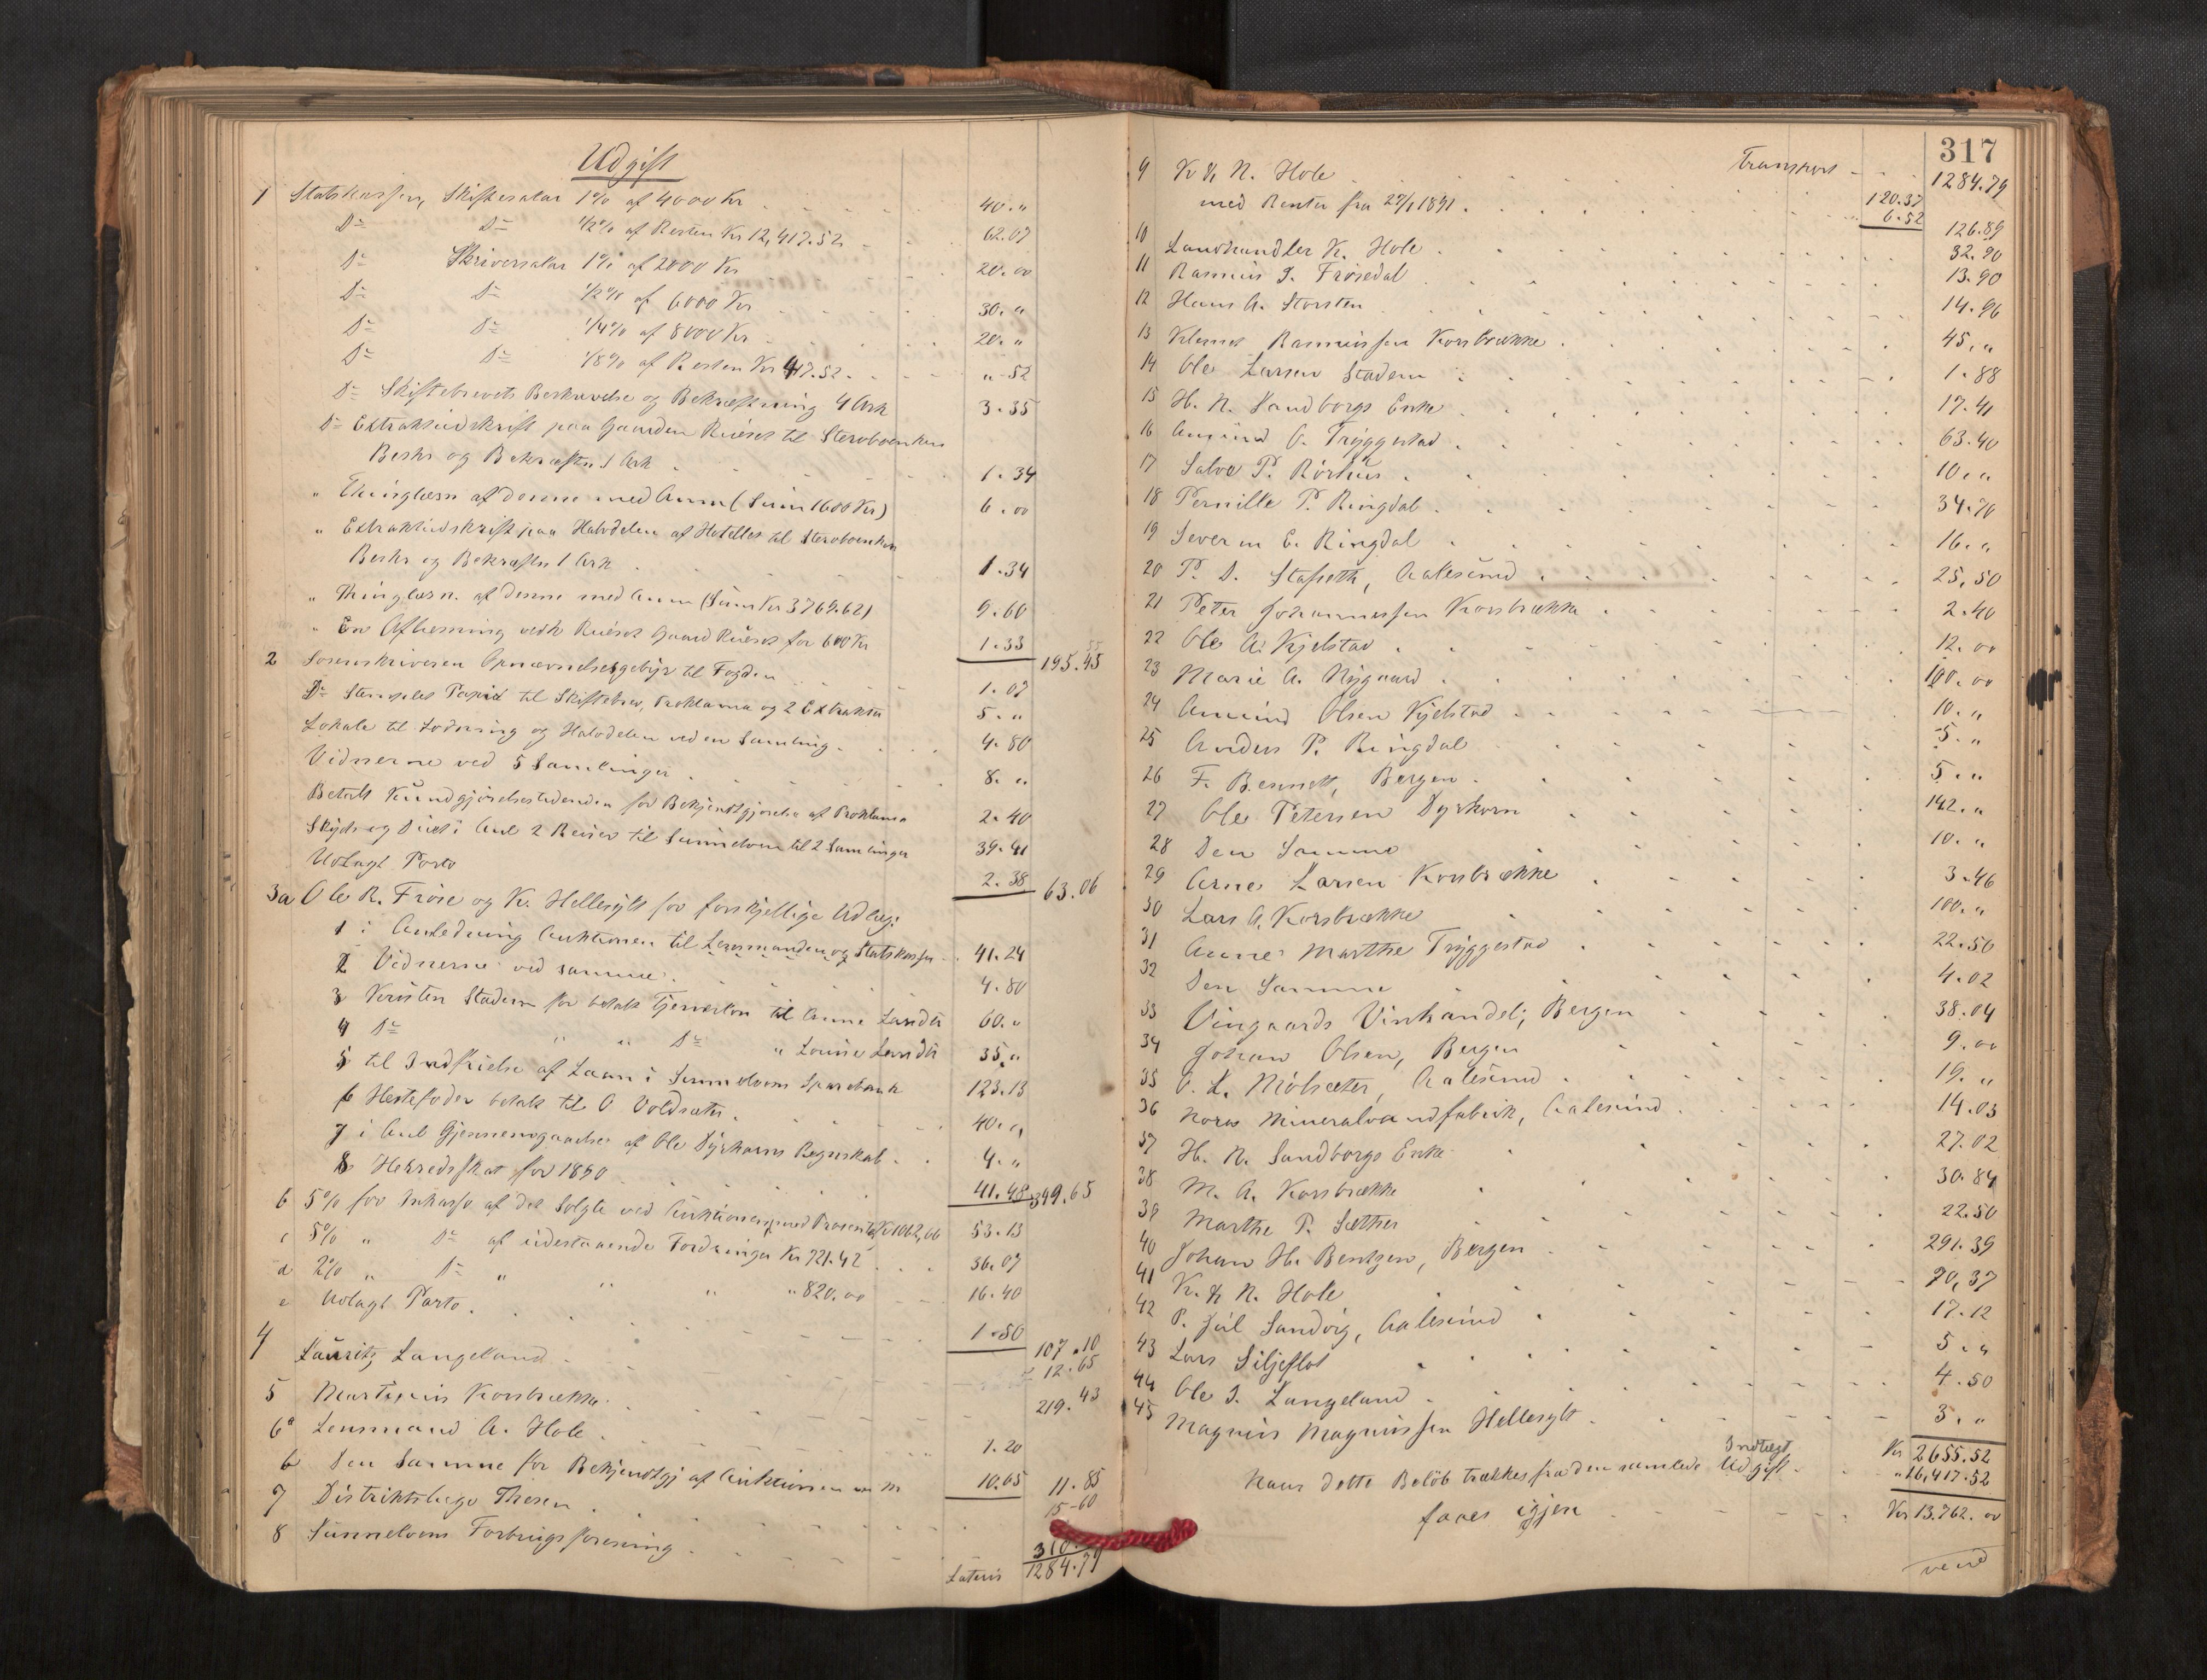 Udgift
1 Statskassen, Skiftesalær 1% af 4000 Kr 40."
Do Do 1/2% af Resten Kr 12,417.52 62.07
Do Skriversalær 1% af 2000 Kr 20.00
Do Do 1/2% af 6000 Kr 30."
Do Do 1/4% af 8000 Kr 20."
Do Do 1/8% af Resten Kr 417.52 "-52
Do Skiftebrevets Beskrivelse og Bekræftning 4 Ark 3.35
Do Extraktudskrift paa Gaarden til Stervboenken
Beskr og Bekræftn 1 Ark 1.34
" Thinglæsn af denne med Anm (Sum 1600 Kr) 6.00
" Extraktudskrift paa Halvdelen af Hotellet til Stervboenken
Beskr og Bekræftn 1 Ark 1.34
" Thinglæsn. af denne med Anm (Sum Kr 3769.62) 9.60
" En Aflæsning vedk Gaard for 600 Kr 1.33 195.45
2 Sorenskriveren Opnævnelsesgebyr til Fogden 1.07
Do Stemplet Papir til Skiftebrev, Proklama og 2 Extrakter 5."
Lokale til Lodning og Halvdelen ved en Samling 4.80
Vidnerne ved 5 Samlinger 8."
Betalt Kundgjørelsestidenden for Bekjentgjørelse af Proklama 2.40
Skyds og Diæt i Anl 2 Reiser til Sunnelven til 2 Samlinger 39.41
Udlagt Porto 2.38 63.06
3a Ole R. Frøse og K. Hellesylt for forskjellige Udlæg:
1 i Anledning Auktionen til Lensmanden og Statskassen 41.24
2 Vidnerne ved samme 4.80
3 Kristen Stadem for betalt Tjenerløn til Anne Lande 60."
4 Do " " Do " Louise Lande 35."
5 til Indfrielse af Laan i Sunnelvens Sparebank 123.13
6 Hestefoder betalt til O Voldsæter 40."
7 i Anl Gjennemgaaelse af Ole Dyrkorns Regnskab 4."
8 Herredsskat for 1890 41.48 349.65
b 5% for Inkasso af det Solgte ved Auktionen med Procenter Kr 1062,66 53.13
c 5% " Do af udestaaende Fordringer Kr 721.42 36.07
d 2% " Do " " " " 820.00 16.40
e Udlagt Porto 1.50 107.10
4 Lauritz Langeland 12.65
5 Martinus Korsbrække 219.43
6a Lensmand A. Hole 1.20
b Den Samme for Bekjendtgj af Auktionen m m 10.65 11.85
7 Distriktslæge Thesen 15-60
8 Sunnelvens Forbrugsforening 310.
Lateris 1284.79
317
Transport 1284.79
9 K & N. Hole 120.37
med Renter fra 27/1 1891 6.52 126.89
10 Landhandler K. Hole 32.90
11 Rasmus I. Frøisedal 13.90
12 Hans A. Storsten 14.96
13 Klemet Rasmussen Korsbrække 45."
14 Ole Larsen Stadem 1.88
15 H. N. Sandborgs Enke 17.41
16 Amund O. Tryggestad 63.40
17 Salve P. Rørhus 10."
18 Pernille P. Ringdal 34.70
19 Severin E. Ringdal 16."
20 P. D. Stafseth, Aalesund 25,50
21 Peter Johannessen Korsbrække 2.40
22 Ole A. Kjelstad 12.00
23 Marie A. Nygaard 100.00
24 Amund Olsen Kjelstad 10."
25 Anders P. Ringdal 5."
26 F. Bennett, Bergen 5."
27 Ole Petersen Dyrkorn 142."
28 Den Samme 10."
29 Arne Larsen Korsbrække 3.46
30 Lars A. Korsbrække 100."
31 Anne Marthe Tryggestad 22.50
32 Den Samme 4.02
33 Vingaards Vinhandel, Bergen 38.04
34 Johan Olsen, Bergen 9.00
35 O. L. Mølsæter, Aalesund 19."
36 Norsk Mineralvandfabrik, Aalesund 14.03
37 H. N. Sandborgs Enke 27.02
38 M. A. Korsbrække 30.84
39 Marthe P. Sæther 22.50
40 Johan H. Bentzen, Bergen 291.39
41 K. & N. Hole 70,37
42 P. Juul Sandvig, Aalesund 17.12
43 Lars Siljeflot 5."
44 Ole I. Langeland 4.50
45 Magnus Magnussen Hellesylt 3."
Kr 2655.52
Naar dette Beløb trækkes fra den samlede Udgift Indtægt " 16,417.52
faaes igjen Kr 13.762.00
vend